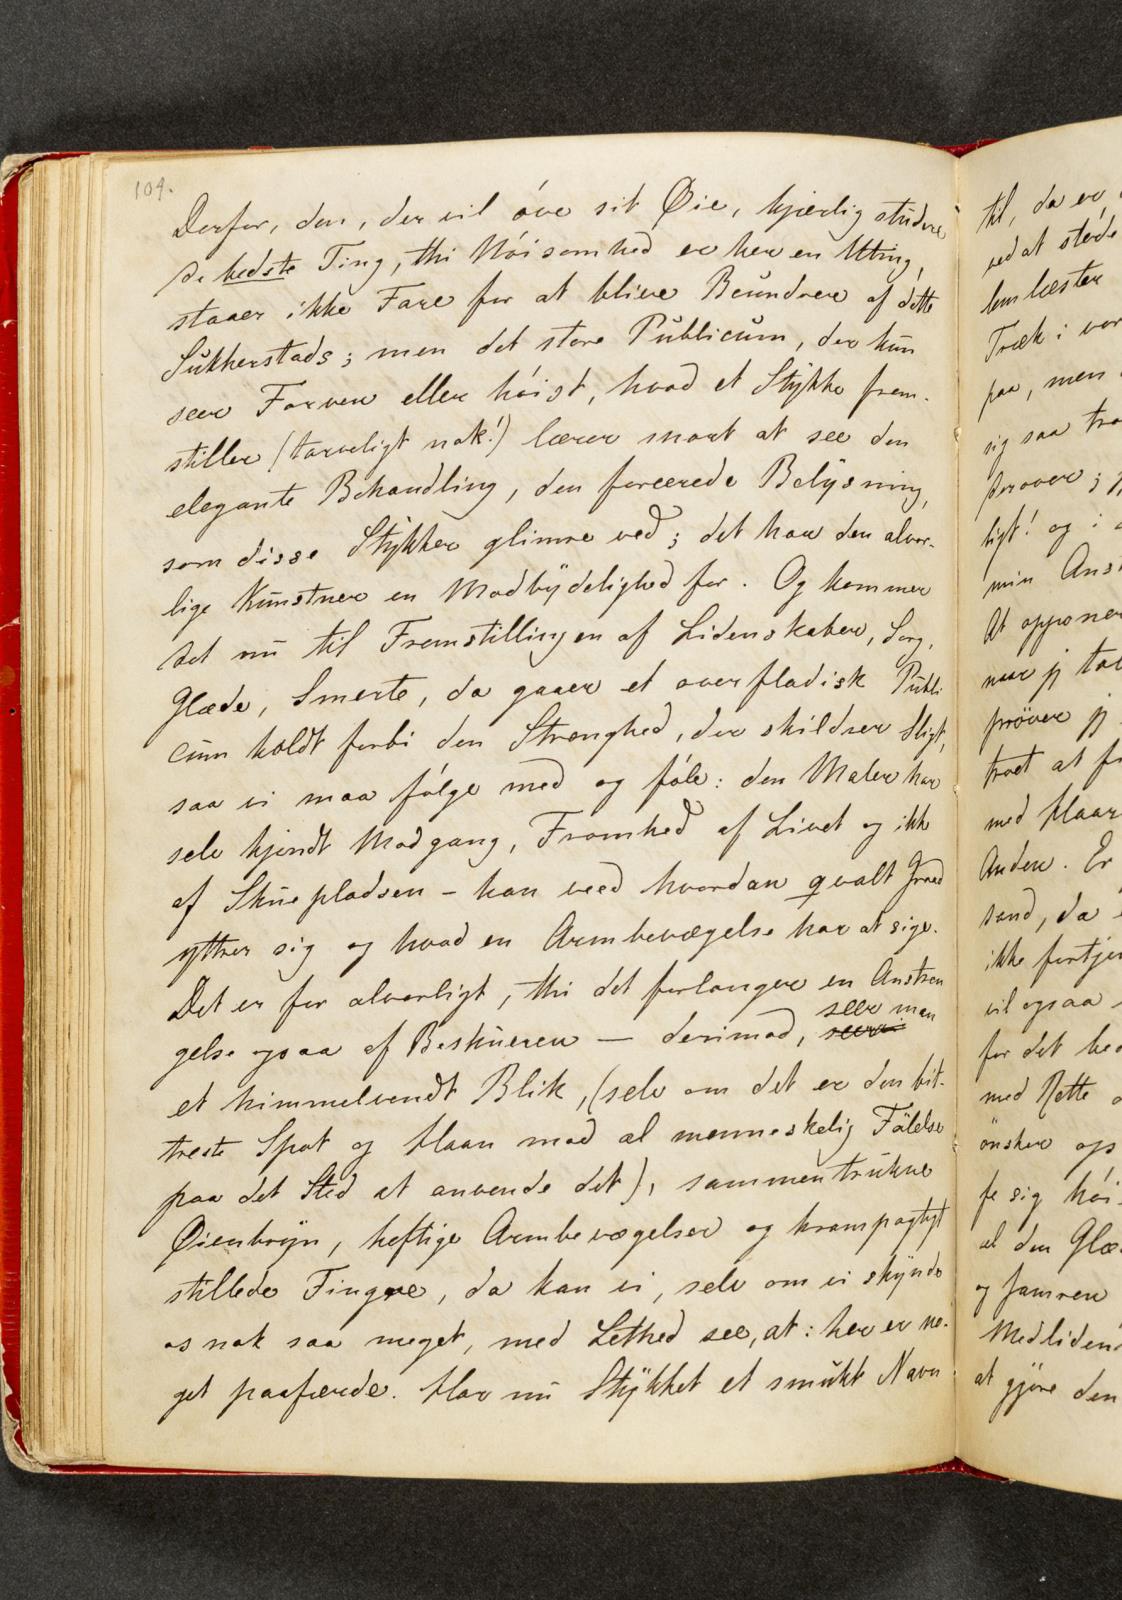 104.
Derfor, den, der vil óve sit Øie, kjærlig studere
de bedste Ting, thi Nóisomhed er her en Uting,
staaer ikke Fare for at blive Beundrer af dette
Sukkerstads; men det store Publicum, der kun
seer Farven eller hóist, hvad et Stykke frem-
stiller (tarveligt nok!) lærer snart at see den
elegante Behandling, den forcerede Belysning,
som disse Stykker glimre ved; det har den alvor-
lige Kunstner en Modbydelighed for. Og kommer
det nu til Fremstillingen af Lidenskaber, Sorg,
Glæde, Smerte, da gaaer et overfladisk Publi
cum koldt forbi den Strenghed, der skildrer Sligt,
saa vi maa fólge med og fóle: den Maler har
selv kjendt Modgang, Fromhed af Livet og ikke
af Skuepladsen – han veed hvordan qvalt Graad
yttrer sig og hvad en Armbevægelse har at sige.
Det er for alvorligt, thi det forlanger en Anstren
gelse ogsaa af Beskueren — derimod, seer man
et himmelvendt Blik, (selv om det er den bit-
treste Spot og Haan mod al menneskelig Fölelse
paa det Sted at anvende det), sammentrukne
Øienbryn, heftige Armbevægelser og krampagtigt
stillede Fingre, da kan vi, selv om vi skynde
os nok saa meget, med Lethed see, at: her er no-
get paafærde. Har nu Stykket et smukt Navn
til, da er
ved at støde
lemlæster
Træk i vor
paa, men
sig saa tra
derover;
ligt! og i
min Ans
At opponer
naar jeg tal
pröver jeg
troet at
med Haar
Anden. Er
sand, da
ikke fortjen
vil ogsaa
for det
med Rette
önsker ogs
fe sig hói
al den Glæ
og Jamren
Medliden
at gjöre den